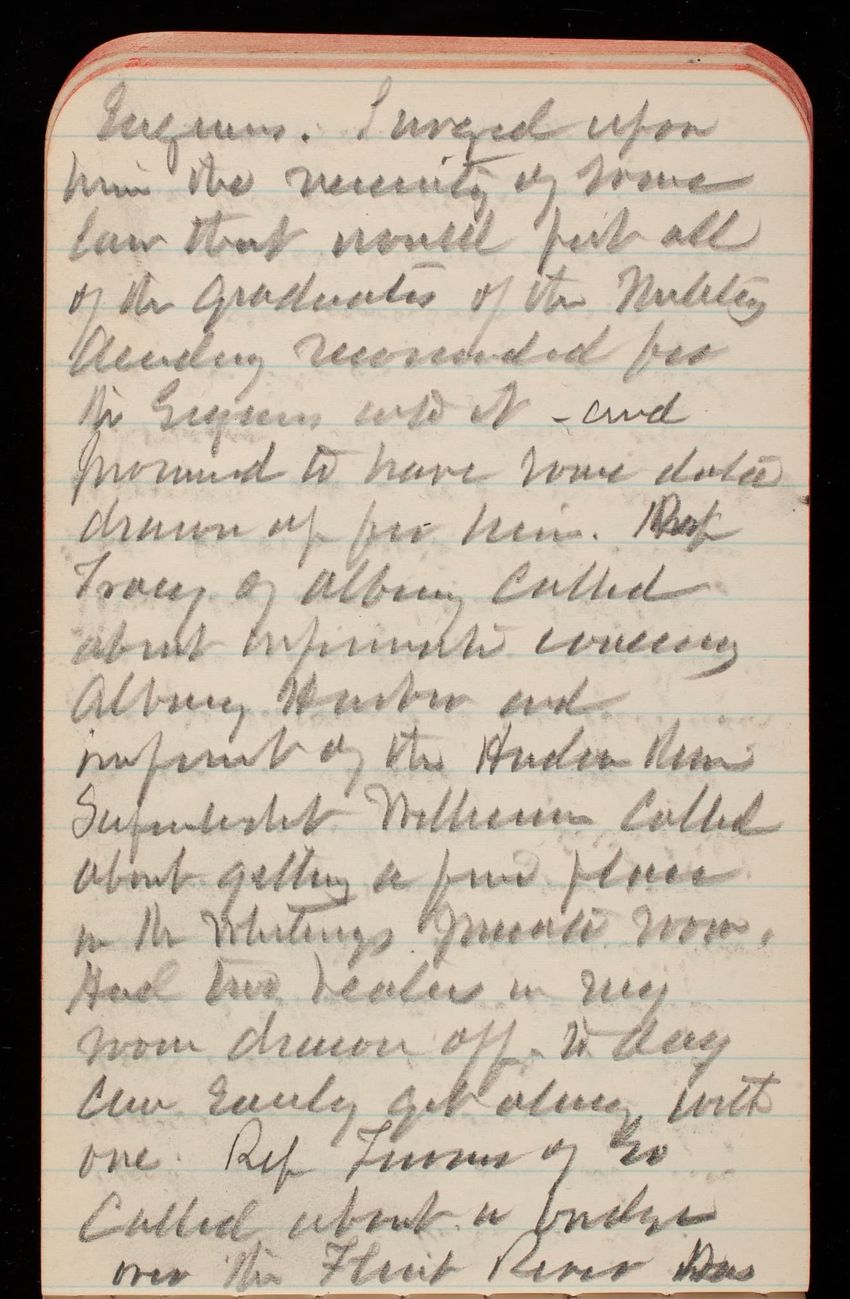 Engineers. I urged upon
him the necessity of some
law that would put all
of the graduates of the Military
Academy recommended for
the Engineers into it - and
promised to have some data
drawn up for him. Rep
Tracy of Albany Called
about improvements concerning
Albany Harbor and
improvement of the Hudson River
Superintendent Williams Called
about getting a fire place
in the Whitings private room.
Had two heaters in my
room drawn off to day
Can Easily get along with
one. Rep Turner of Ga
Called about a bridge
over the Flint River Has